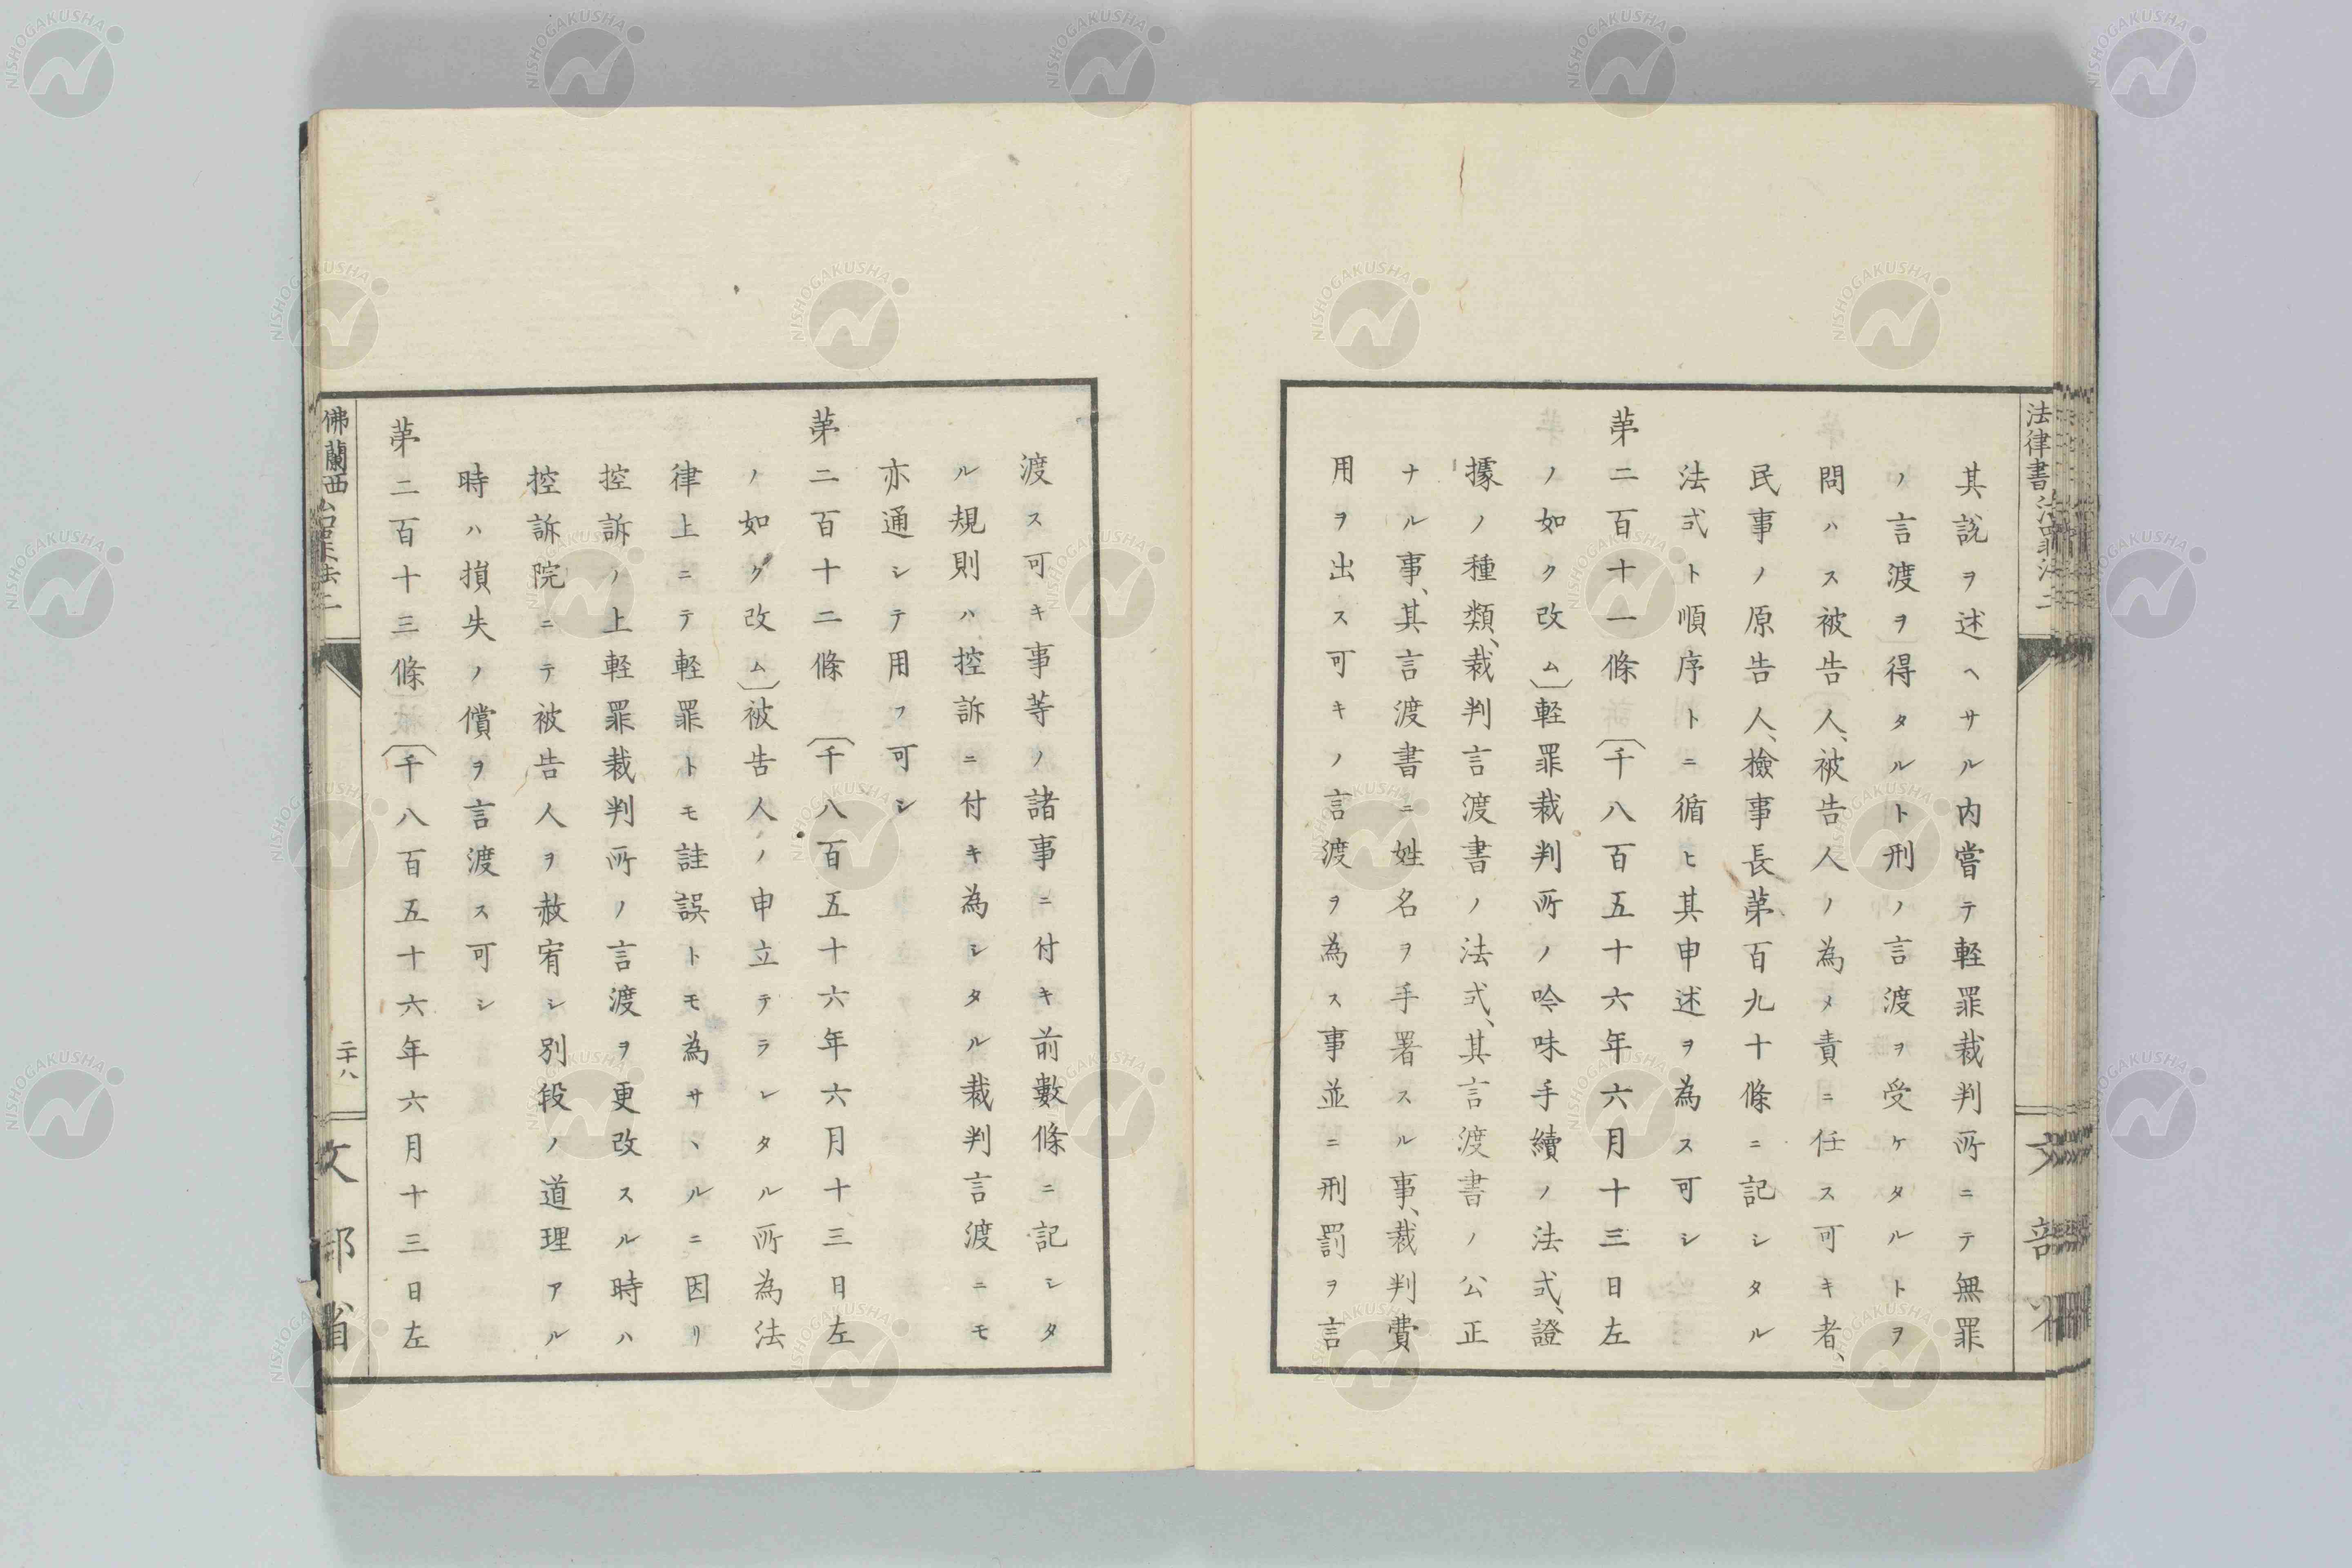 其説ヲ述ヘサル内嘗テ軽罪裁判所ニテ無罪
ノ言渡ヲ得タルト刑ノ言渡ヲ受ケタルトヲ
問ハス被告人、被告人ノ為メ責ニ任ス可キ者、
民事ノ原告人、檢事長第百九十條ニ記シタル
法式ト順序トニ循ヒ其申述ヲ為ス可シ
第二百十一條〔千八百五十六年六月十三日左
ノ如ク改ム〕軽罪裁判所ノ吟味手續ノ法式、證
據ノ種類、裁判言渡書ノ法式、其言渡書ノ公正
ナル事、其言渡書ニ姓名ヲ手署スル事、裁判費
用ヲ出ス可キノ言渡ヲ為ス事並ニ刑罰ヲ言
渡ス可キ事等ノ諸事ニ付キ前數條ニ記シタ
ル規則ハ控訴ニ付キ為シタル裁判言渡ニモ
亦通シテ用フ可シ
第二百十二條〔千八百五十六年六月十三日左
ノ如ク改ム〕被告人ノ申立テラレタル所為法
律上ニテ軽罪トモ註誤トモ為サヽルニ因リ
控訴ノ上軽罪裁判所ノ言渡ヲ更改スル時ハ
控訴院ニテ被告人ヲ赦宥シ別段ノ道理アル
時ハ損失ノ償ヲ言渡ス可シ
第二百十三條〔千八百五十六年六月十三日左
佛蘭西治罪法二
二十八
文部省
NISHOGAKUSHA